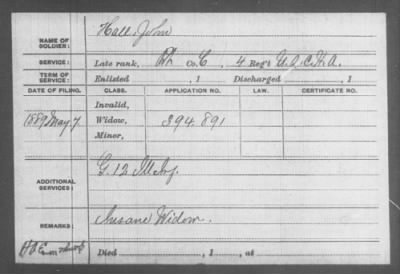 NAME OF SOLDIER: Hall, John
SERVICE: Late rank, Co. C, 4 Reg't U.S.C.H.A.
TERM OF SERVICE: Enlisted , 1 Discharged , 1
DATE OF FILING. CLASS. APPLICATION NO. LAW. CERTIFICATE NO.
Invalid,
1889 May 7 Widow, 394.891
Minor,
ADDITIONAL SERVICES: G. 12 Ill Inf.
REMARKS: Insane Widow.
Died , 1 , at